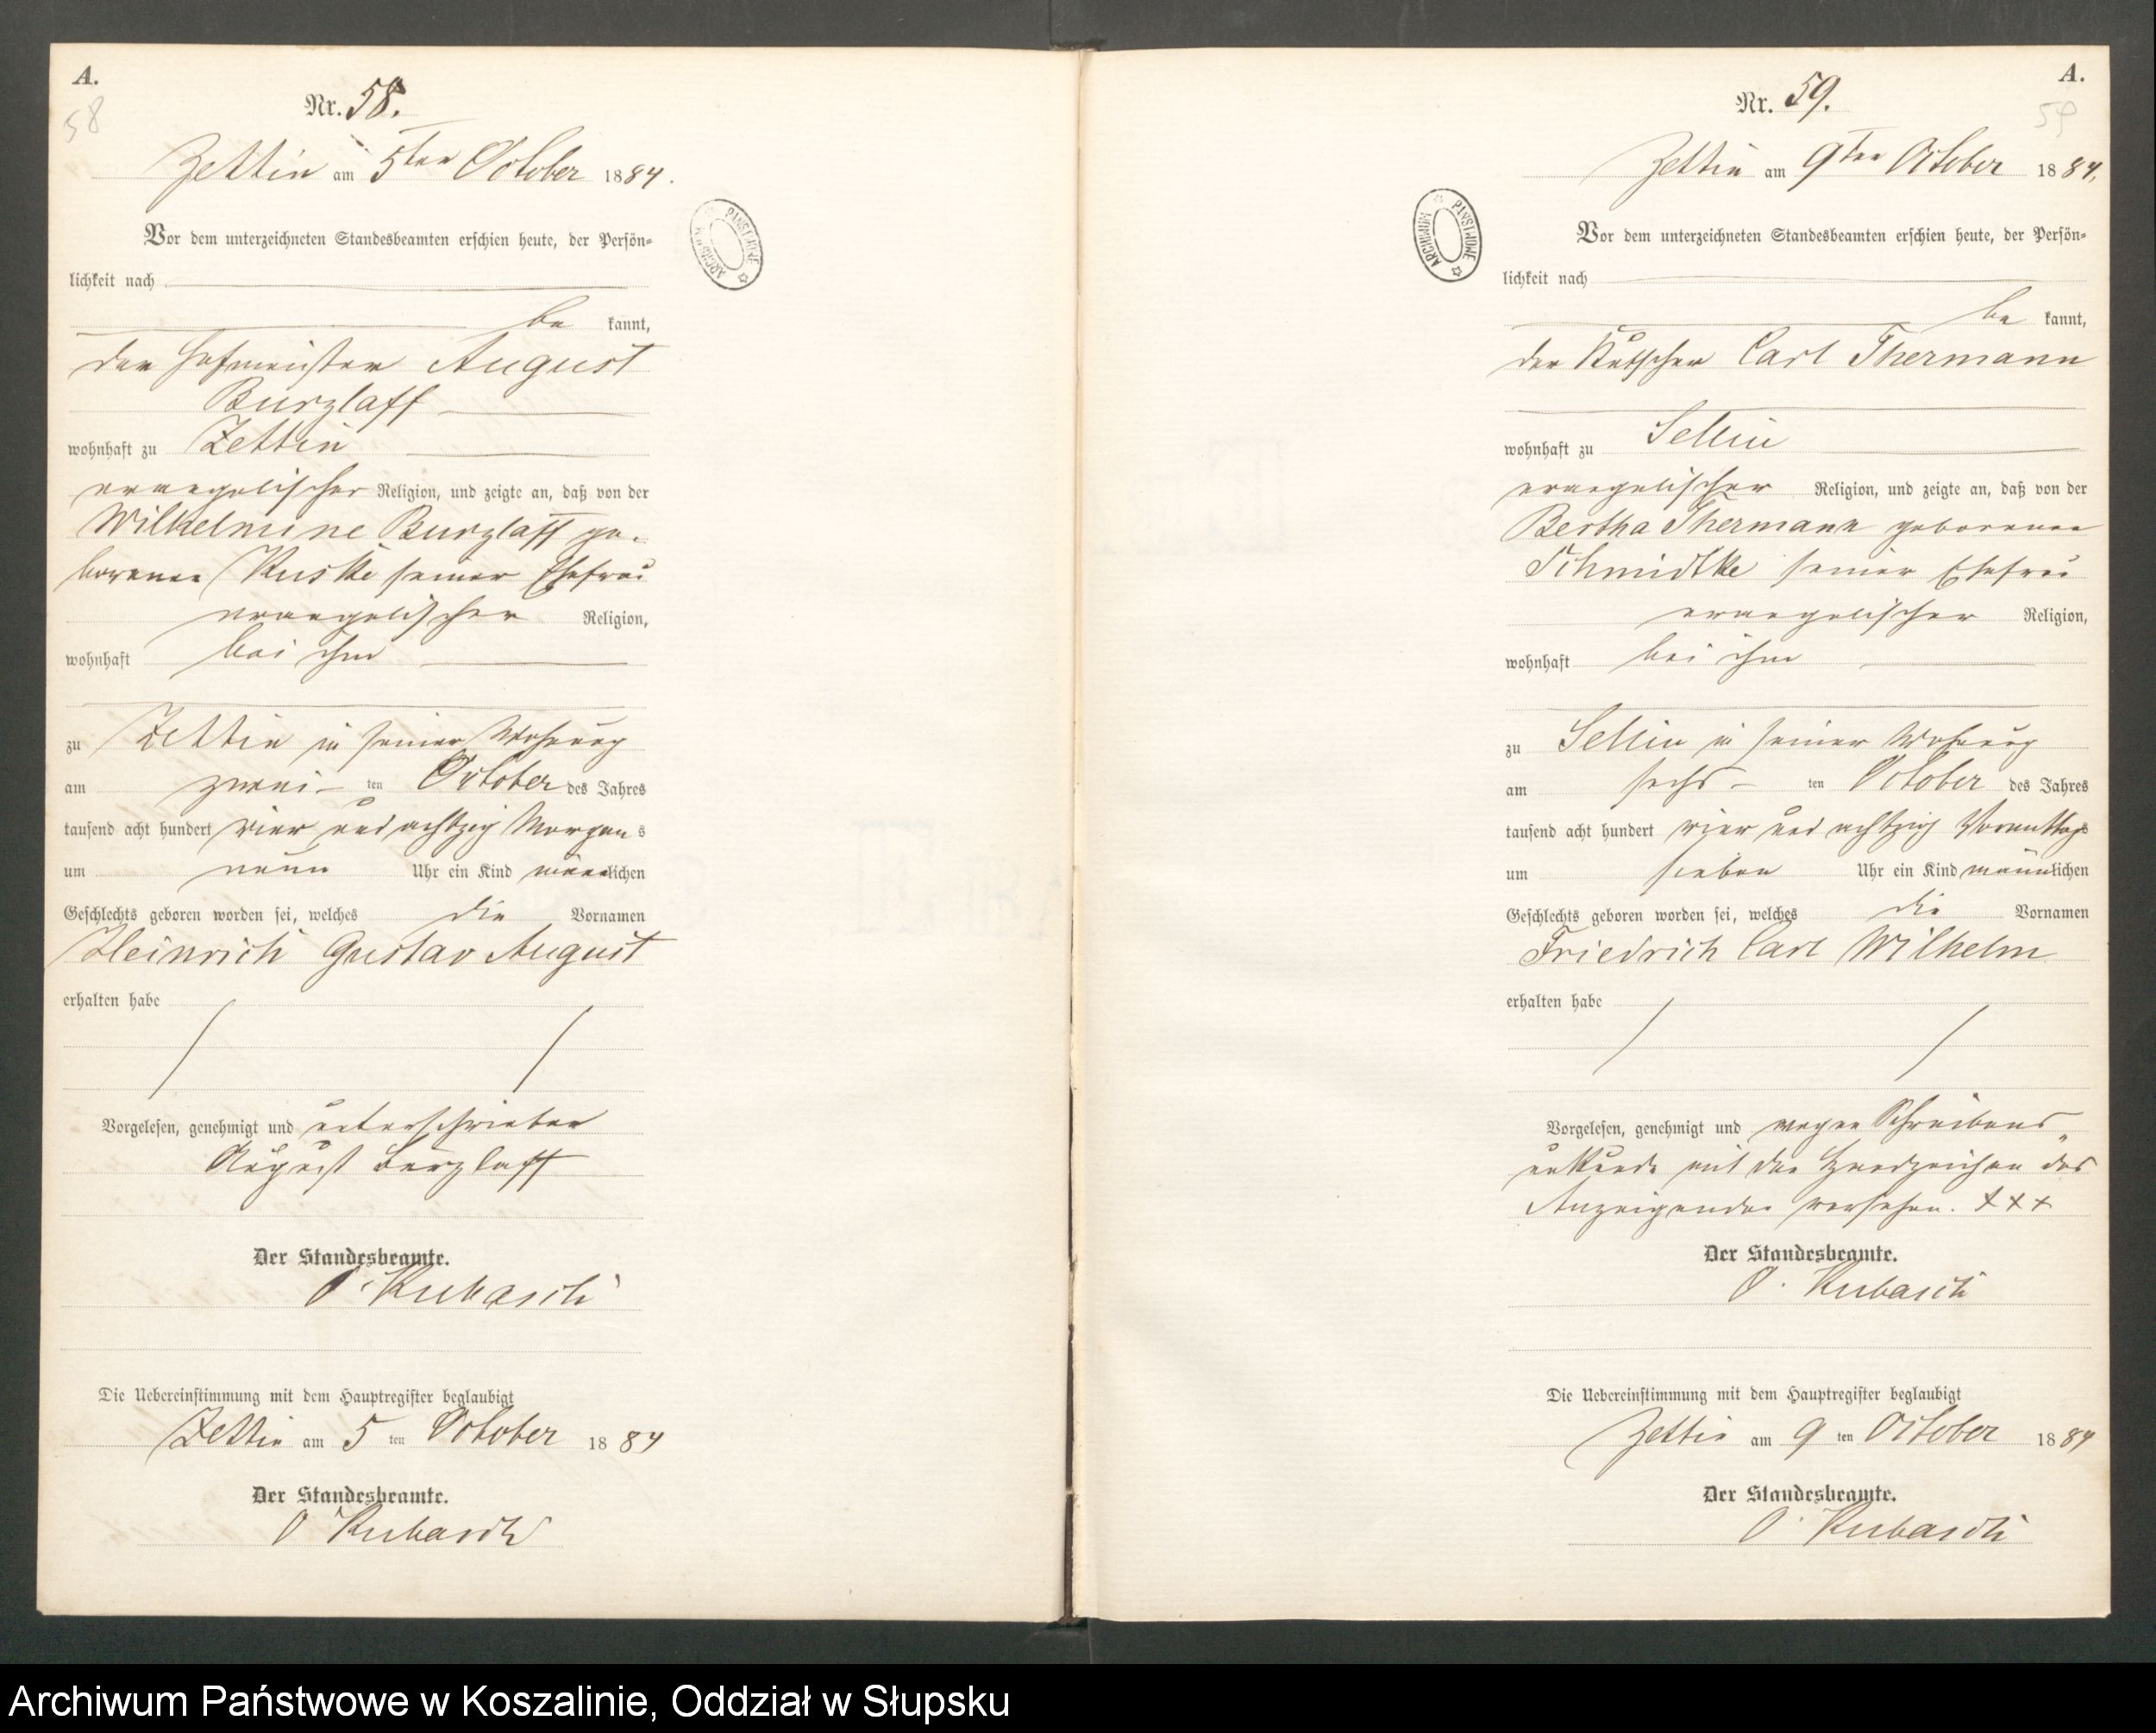 A.
58
Nr. 58.
Zettin am 5ten October 1884.
Vor dem unterzeichneten Standesbeamten erschien heute, der Persön-
lichkeit nach
be kannt,
der Hofmeister August
Burzlaff
wohnhaft zu Zettin
evangelischer Religion, und zeigte an, daß von der
Wilhelmine Burzlaff ge-
borenen Kuske seiner Ehefrau
evangelischer Religion,
wohnhaft bei ihm
zu Zettin in seiner Wohnung
am zwei- ten October des Jahres
tausend acht hundert vier und achtzig Morgens
um neun Uhr ein Kind männlichen
Geschlechts geboren worden sei, welches die Vornamen
Heinrich Gustav August
erhalten habe
Vorgelesen, genehmigt und unterschrieben
August Burzlaff
Der Standesbeamte.
O. Kubasch
Die Uebereinstimmung mit dem Hauptregister beglaubigt
Zettin am 5 ten October 1884
Der Standesbeamte.
O. Kubasch
PAŃSTWOWE ARCHIWUM
A.
59
Nr. 59.
Zettin am 9ten October 1884.
Vor dem unterzeichneten Standesbeamten erschien heute, der Persön-
lichkeit nach
be kannt,
der Kutscher Carl Thermann
wohnhaft zu Sellin
evangelischer Religion, und zeigte an, daß von der
Bertha Thermann geborenen
Schmidtke seiner Ehefrau
evangelischer Religion,
wohnhaft bei ihm
zu Sellin in seiner Wohnung
am sechs- ten October des Jahres
tausend acht hundert vier und achtzig Vormittags
um sieben Uhr ein Kind männlichen
Geschlechts geboren worden sei, welches die Vornamen
Friedrich Carl Wilhelm
erhalten habe
Vorgelesen, genehmigt und wegen Schreibens-
unkunde mit den Handzeichen des
Anzeigenden versehen. +++
Der Standesbeamte.
O. Kubasch
Die Uebereinstimmung mit dem Hauptregister beglaubigt
Zettin am 9 ten October 1884
Der Standesbeamte.
O. Kubasch
PAŃSTWOWE ARCHIWUM
Archiwum Państwowe w Koszalinie, Oddział w Słupsku